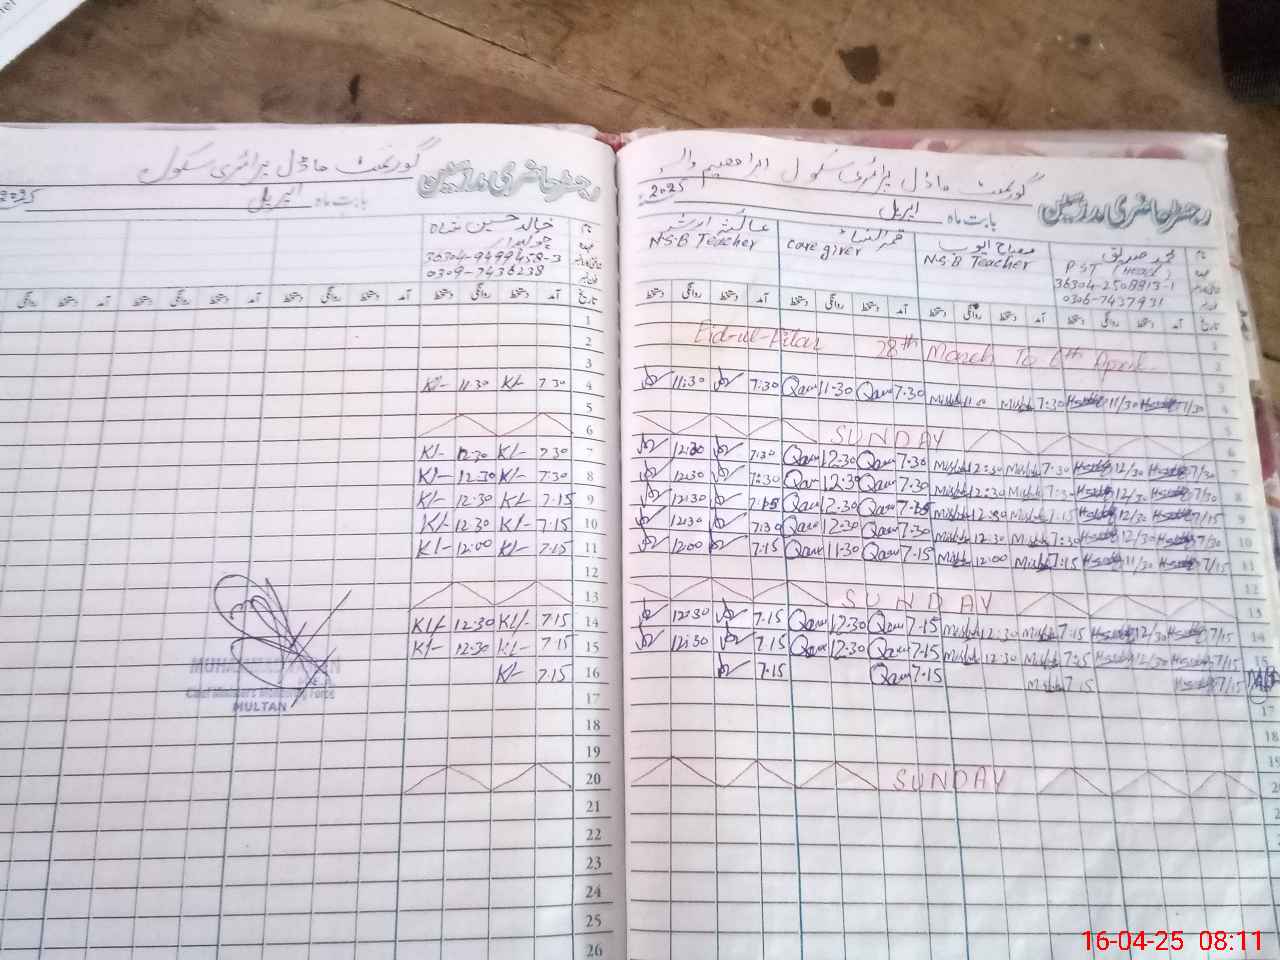 رجسٹر حاضری مدرسین گورنمنٹ ماڈل پرائمری سکول ابراھیم والہ
بابت ماہ اپریل 2025
نام محمد صدیق مصباح ایوب قمر النساء عائشہ ارشد
PST (Head) N.S.B Teacher care giver N.S.B Teacher
36304-2508813-1
0306-7437931
تاریخ آمد دستخط روانگی دستخط آمد دستخط روانگی دستخط آمد دستخط روانگی دستخط آمد دستخط روانگی دستخط
1
2 Eid-ul-Fitar 28th March To 6th April
3
4 11:30 7:30 Qam 11-30 Qam 7.30 Misbh 7:30 11/30 7/30
5
6 SUNDAY
7 12:30 7:30 Qam 12-30 Qam 7-30 Misbh 12:30 Misbh 7.30 12/30 7/30
8 12:30 7:30 Qam 12-30 Qam 7.30 Misbh 12:30 Misbh 7:30 12/30 7/30
9 12:30 7:15 Qam 12-30 Qam 7-15 Misbh 12:30 Misbh 7:15 12/30 7/15
10 12:30 7:30 Qam 12-30 Qam 7-30 Misbh 12:30 Misbh 7:30 12/30 7/30
11 12:00 7.15 Qam 11-30 Qam 7-15 Misbh 12:00 Misbh 7:15 11/30 7/15
12
13 SUNDAY
14 12:30 7.15 Qam 12-30 Qam 7-15 Misbh 12:30 Misbh 7:15 12/30 7/15
15 12:30 7.15 Qam 12-30 Qam 7-15 Misbh 12:30 Misbh 7:15 12/30 7/15
16 7.15 Qam 7-15 Misbh 7:15 7/15
17
18
19
20 SUNDAY
رجسٹر حاضری مدرسین گورنمنٹ ماڈل پرائمری سکول
بابت ماہ اپریل 2025
نام خالد حسین شاہ
چوکیدار
36304-9499458-3
0309-7436238
تاریخ آمد دستخط روانگی دستخط آمد دستخط روانگی دستخط آمد دستخط روانگی دستخط آمد دستخط روانگی
1
2
3
4 7.30 Kl- 11.30 Kl-
5
6
7 7.30 Kl- 12.30 Kl-
8 7.30 Kl- 12.30 Kl-
9 7.15 Kl- 12.30 Kl-
10 7.15 Kl- 12.30 Kl-
11 7.15 Kl- 12:00 Kl-
12
13
14 7.15 Kl- 12.30 Kl-
15 7.15 Kl- 12.30 Kl-
16 7.15 Kl-
17
18
19
20
21
22
23
24
25
26
Chief Minister's Monitoring Force
MULTAN
16-04-25 08:11